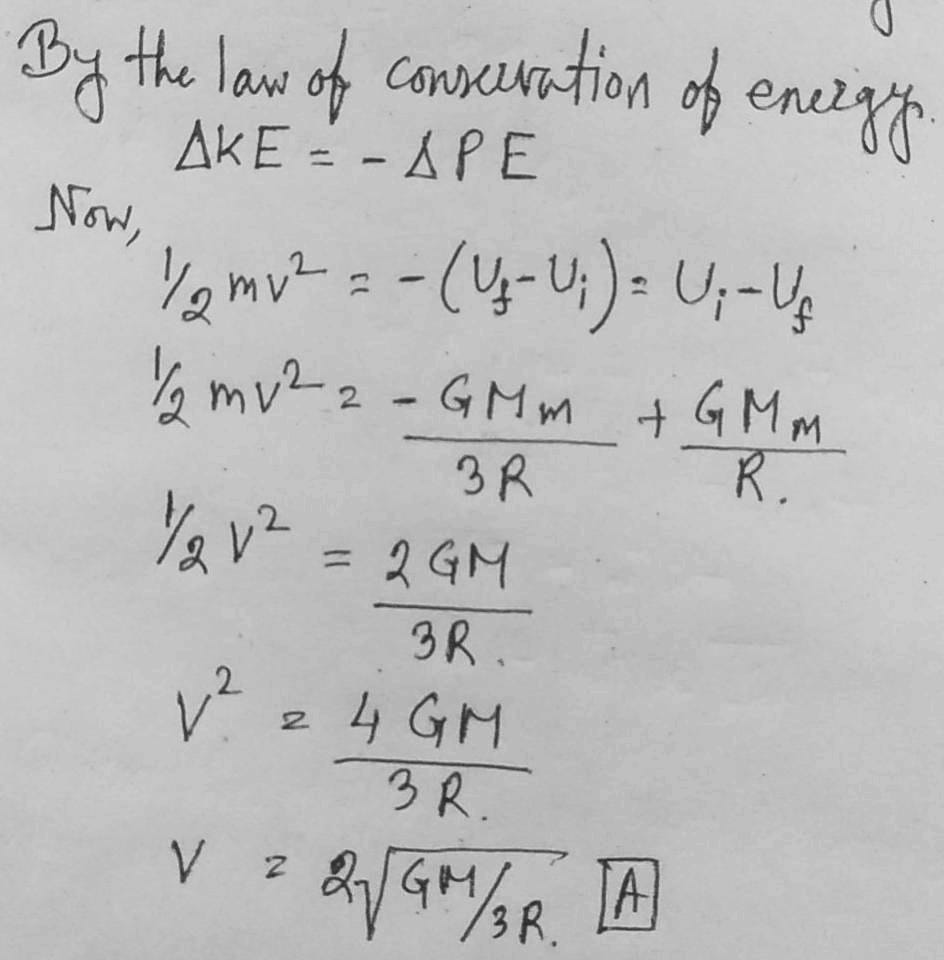 By the law of conservation of energy.
ΔKE = - ΔPE
Now,
1/2 mv² = - (Uf - Ui) = Ui - Uf
1/2 mv² = - GMm/3R + GMm/R.
1/2 v² = 2GM/3R.
v² = 4GM/3R.
v = 2√GM/3R. A